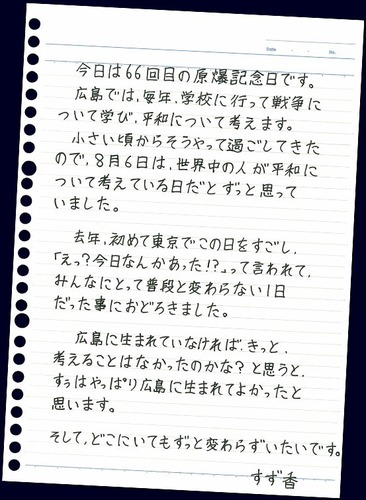 Date
No.
今日は66回目の原爆記念日です。
広島では、毎年、学校に行って戦争に
ついて学び、平和について考えます。
小さい頃からそうやって過ごしてきた
ので、8月6日は、世界中の人が平和に
ついて考えている日だとずっと思って
いました。
去年、初めて東京でこの日をすごし、
「えっ?今日なんかあった!?」って言われて、
みんなにとって普段と変わらない1日
だった事におどろきました。
広島に生まれていなければ、きっと、
考えることはなかったのかな?と思うと、
すぅはやっぱり広島に生まれてよかったと
思います。
そして、どこにいてもずっと変わらずいたいです。
すず香